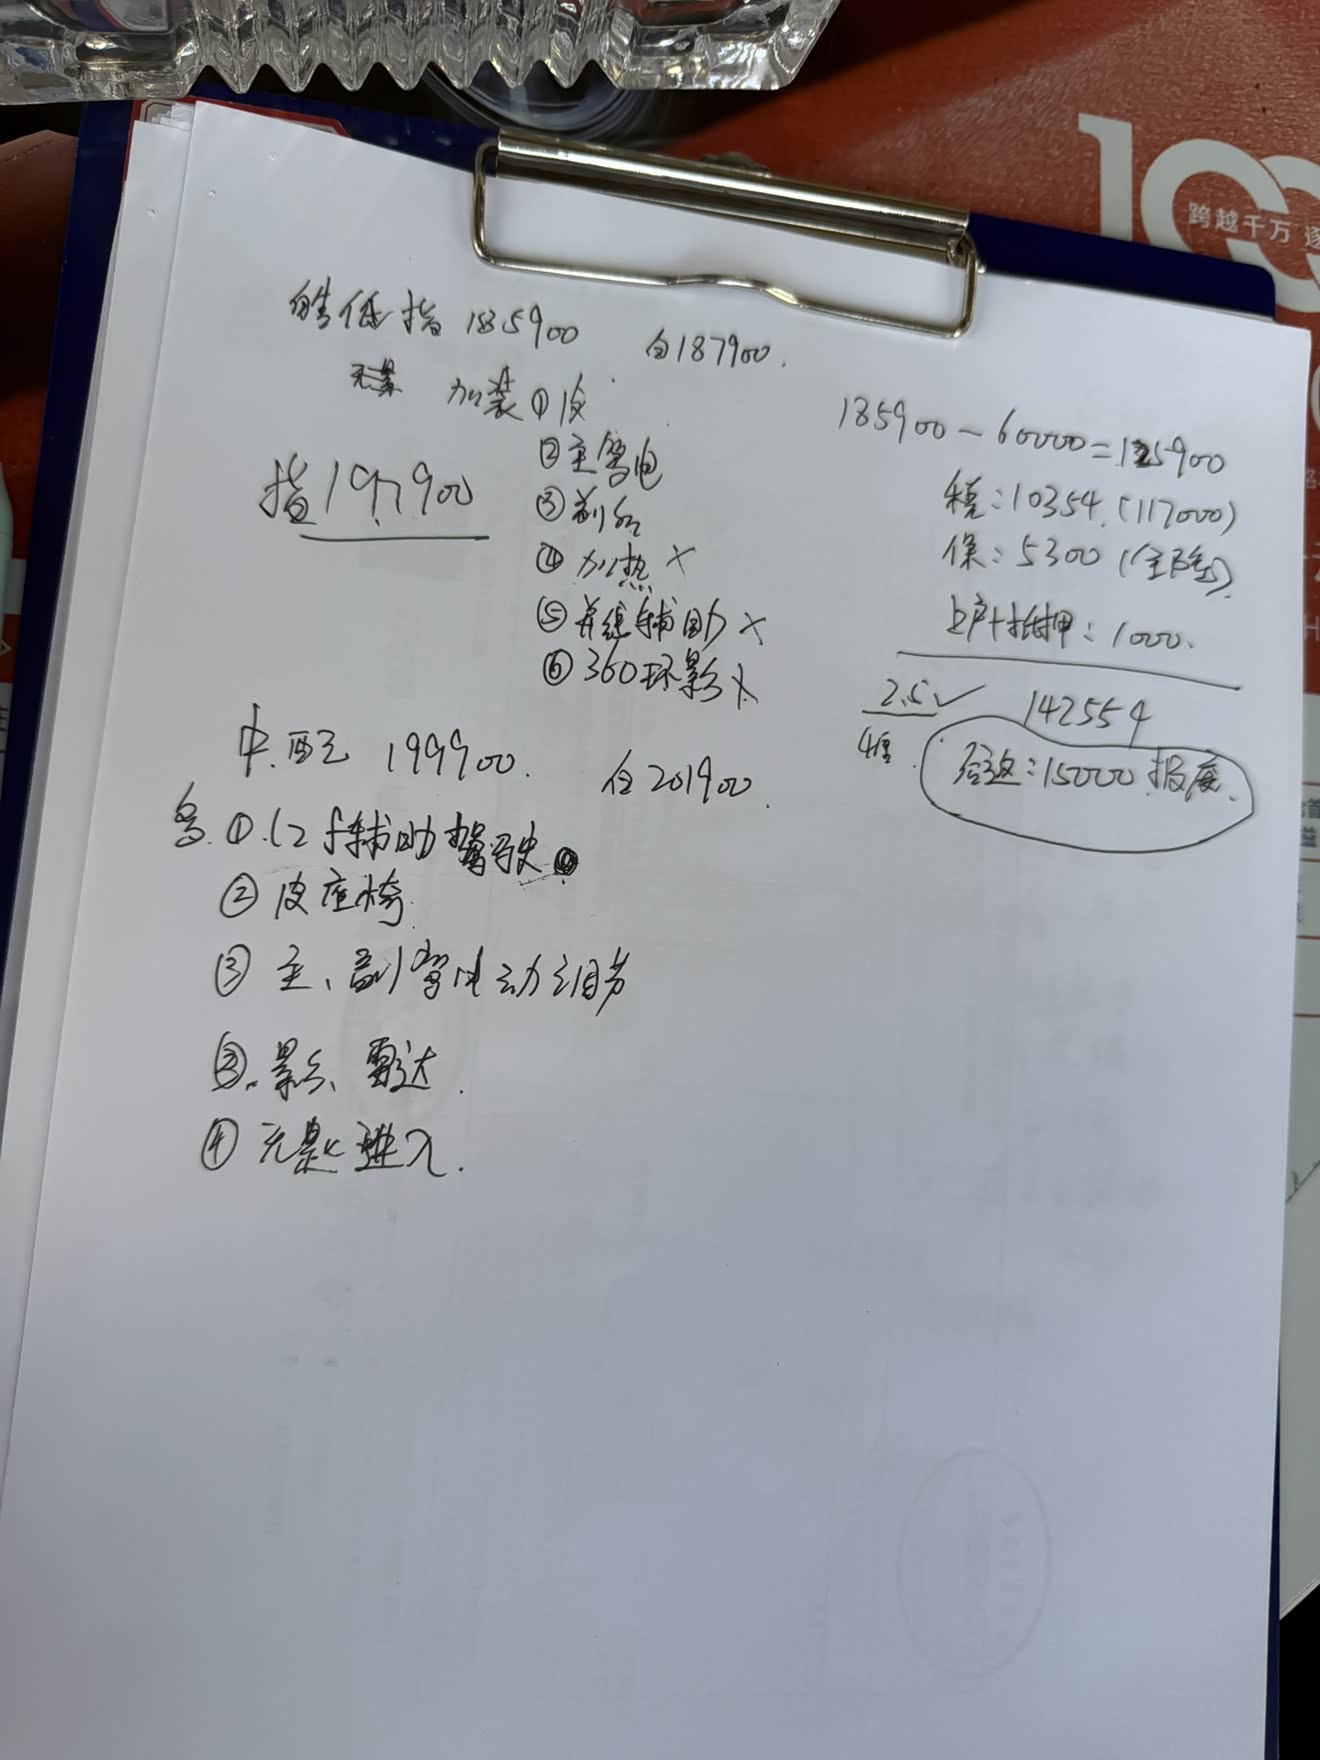 皓低指 185900 白187900.
无匙 加装①皮
②主驾电
指197900
③副
④加热 ×
⑤并线辅助 ×
⑥360环影 ×
185900-60000=125900
税:10354.(117000)
保:5300(全险)
上户+抵押:1000.
2.5✓ 142554
店返:15000.报废.
中.配 199900. 白201900.
多.①.L2 辅助驾驶
②皮座椅.
③主、副驾电动调节
③.影、雷达.
④无匙进入.
100
跨越千万 逐